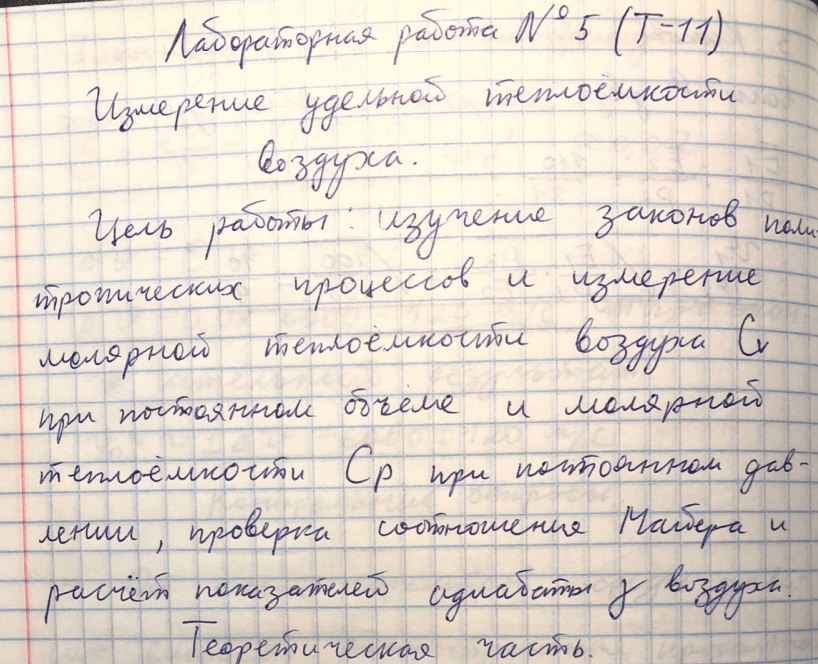 Лабораторная работа №5 (Т-11)
Измерение удельной теплоёмкости
воздуха.
Цель работы: изучение законов поли-
тропических процессов и измерение
молярной теплоёмкости воздуха Cv
при постоянном объёме и молярной
теплоёмкости Cp при постоянном дав-
лении, проверка соотношения Майера и
расчёт показателей адиабаты γ воздуха.
Теоретическая часть.